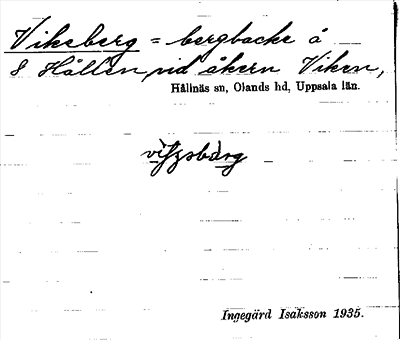 Vikeberg = bergbacke å
S Hållen vid åkern Viken,
Hållnäs sn, Olands hd, Uppsala län.
Ingegärd Isaksson 1935.